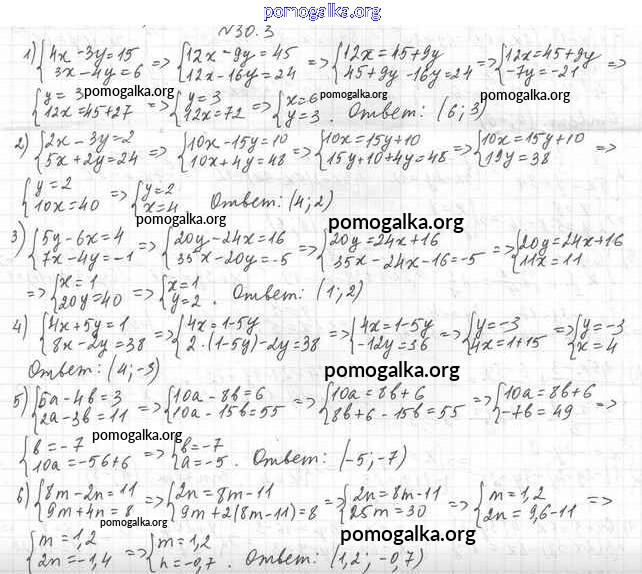 pomogalka.org
№30.3
1) {4x-3y=15 3x-4y=6 => {12x-9y=45 12x-16y=24 => {12x=45+9y 45+9y-16y=24 => {12x=45+9y -7y=-21 =>
{y=3 12x=45+27 => {y=3 12x=72 => {x=6 y=3. Ответ: (6;3)
pomogalka.org pomogalka.org
2) {2x-3y=2 5x+2y=24 => {10x-15y=10 10x+4y=48 => {10x=15y+10 15y+10+4y=48 => {10x=15y+10 19y=38 =>
{y=2 10x=40 => {y=2 x=4 Ответ: (4;2)
pomogalka.org pomogalka.org
3) {5y-6x=4 7x-4y=-1 => {20y-24x=16 35x-20y=-5 => {20y=24x+16 35x-24x-16=-5 => {20y=24x+16 11x=11
pomogalka.org pomogalka.org
=> {x=1 20y=40 => {x=1 y=2. Ответ: (1;2)
4) {4x+5y=1 8x-2y=38 => {4x=1-5y 2·(1-5y)-2y=38 => {4x=1-5y -12y=36 => {y=-3 4x=1+15 => {y=-3 x=4
Ответ: (4;-3)
pomogalka.org
5) {5a-4b=3 2a-3b=11 => {10a-8b=6 10a-15b=55 => {10a=8b+6 8b+6-15b=55 => {10a=8b+6 -7b=49 =>
pomogalka.org
{b=-7 10a=-56+6 => {b=-7 a=-5. Ответ: (-5;-7)
6) {8m-2n=11 9m+4n=8 => {2n=8m-11 9m+2(8m-11)=8 => {2n=8m-11 25m=30 => {m=1,2 2n=9,6-11 =>
pomogalka.org pomogalka.org
{m=1,2 2n=-1,4 => {m=1,2 n=-0,7. Ответ: (1,2; -0,7)